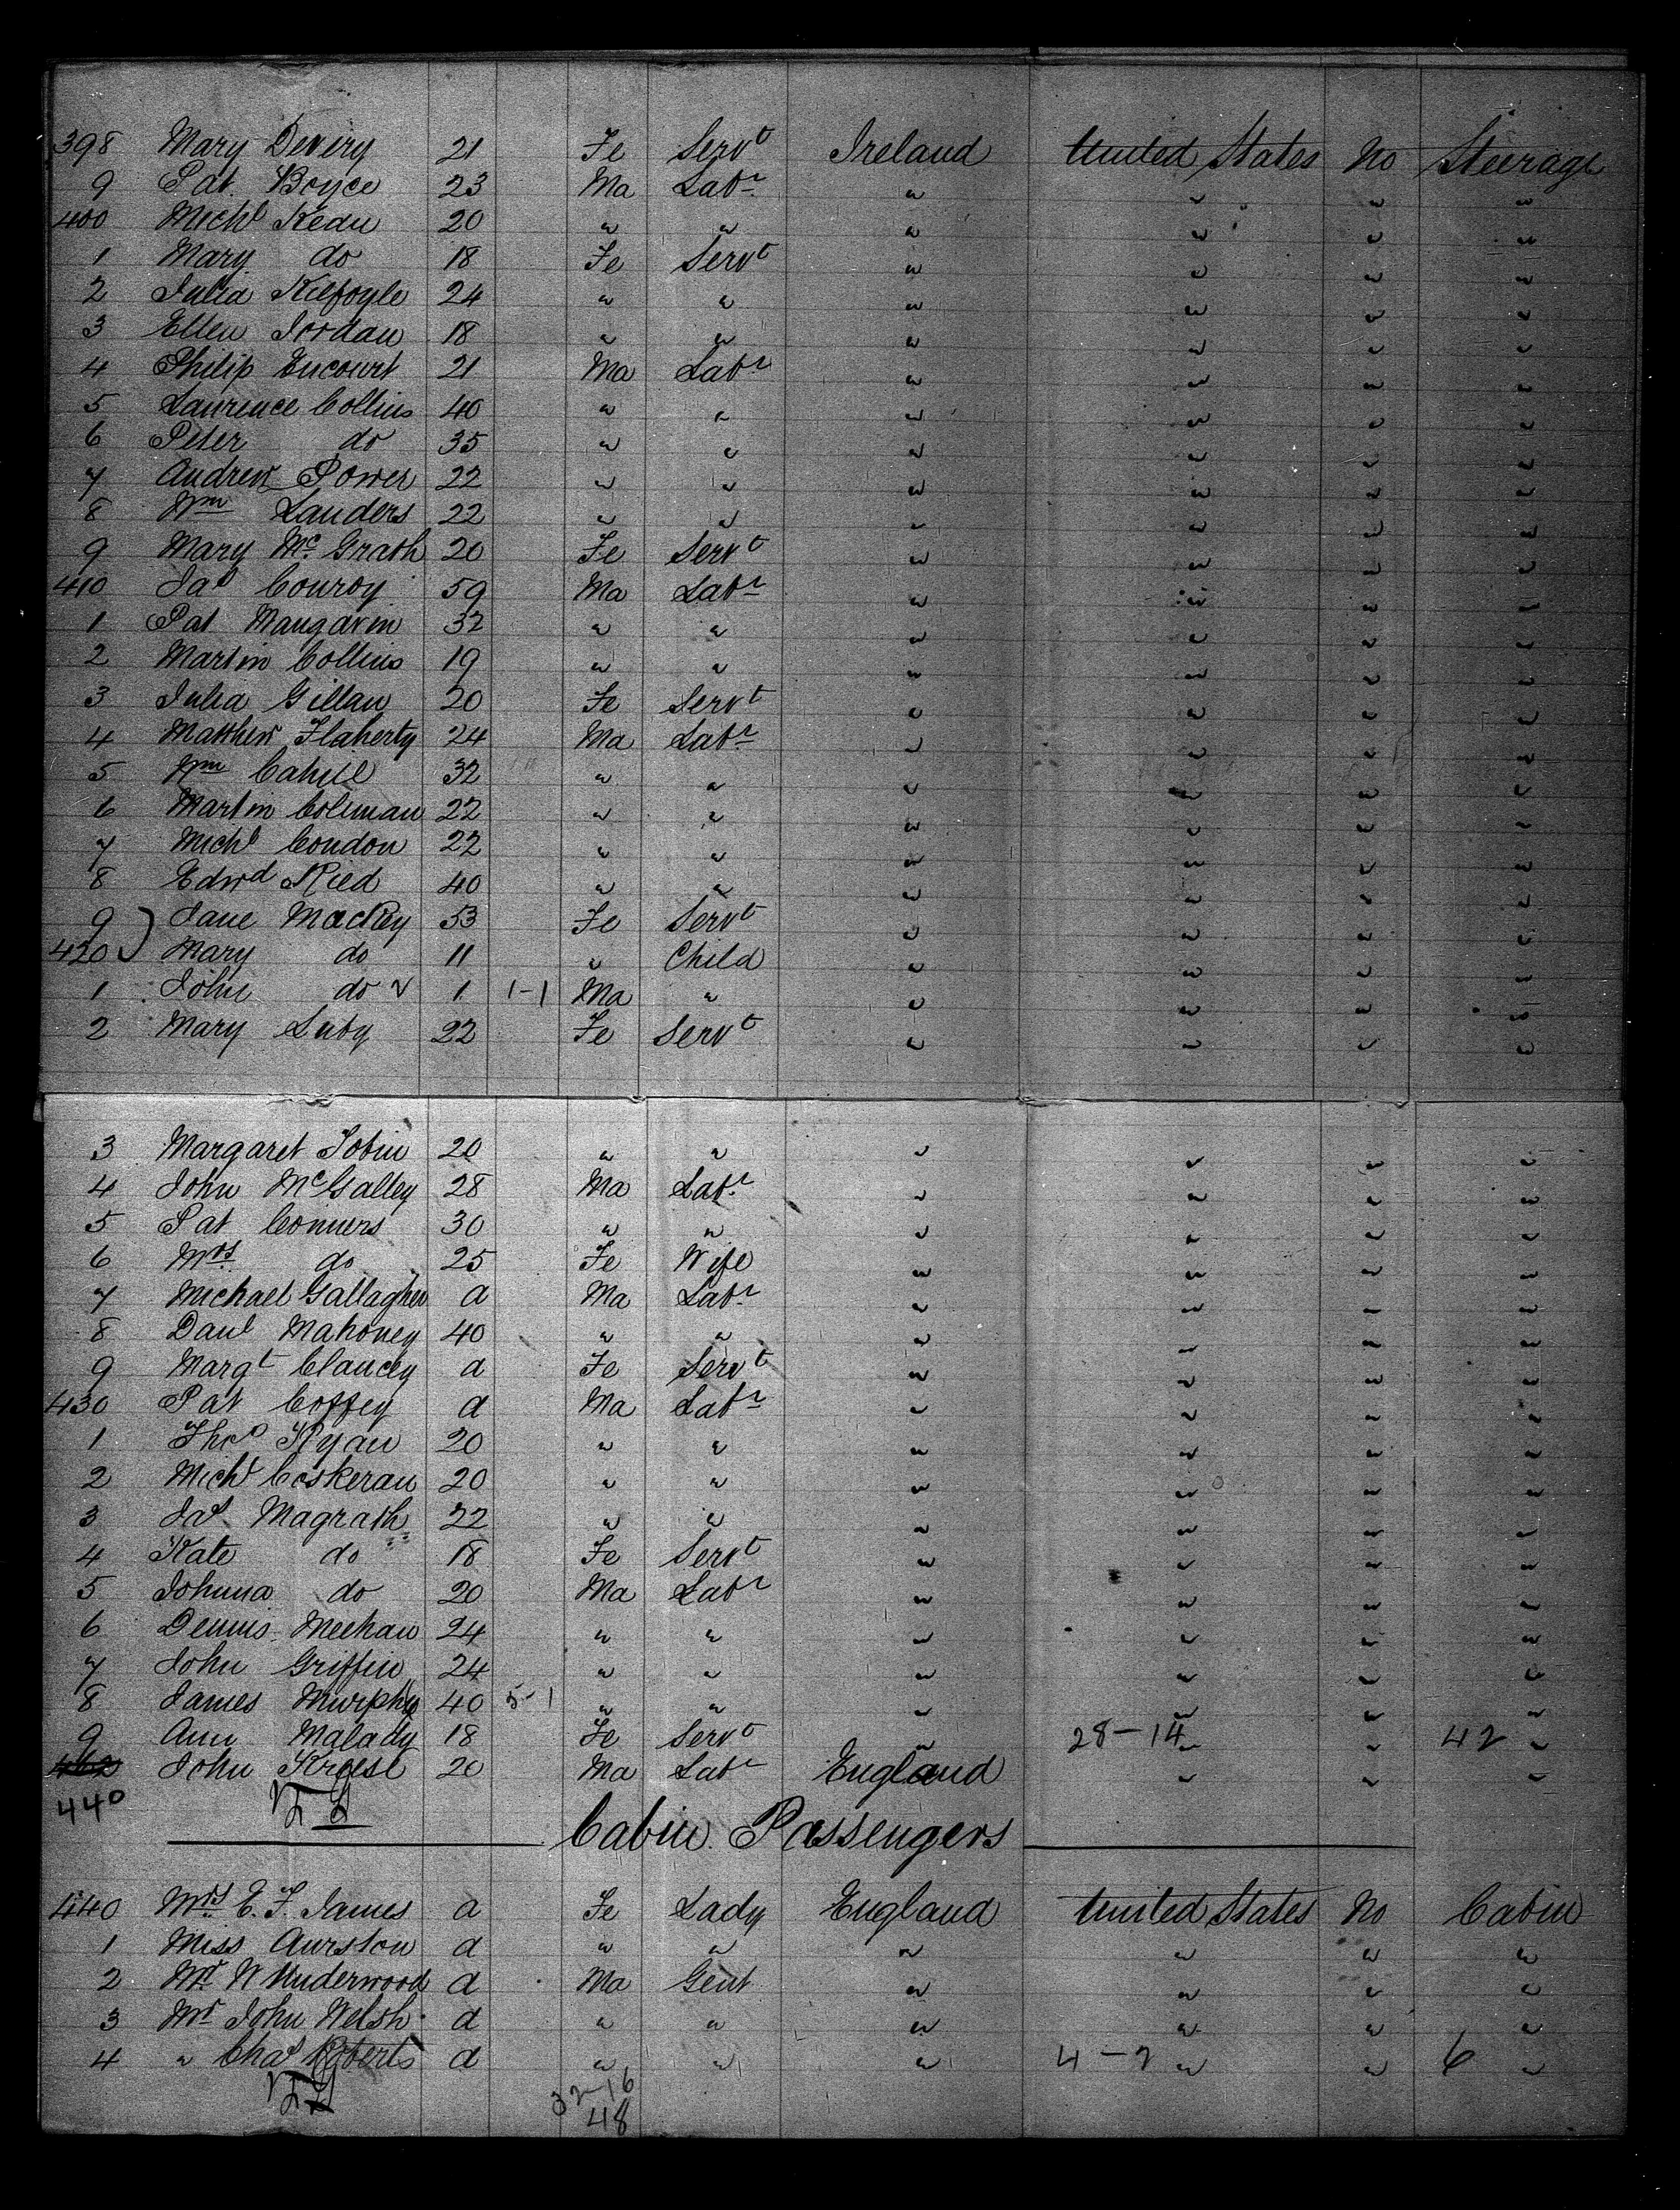 398 Mary Devery 21 Fe Servt Ireland United States No Steerage
9 Pat Boyce 23 Ma Labr " " " "
400 Michl Kean 20 " " " " " "
1 Mary do 18 Fe Servt " " " "
2 Julia Kilfoyle 24 " " " " " "
3 Ellen Jordan 18 " " " " " "
4 Philip Encourt 21 Ma Labr " " " "
5 Laurence Collins 40 " " " " " "
6 Peter do 35 " " " " " "
7 Andrew Power 22 " " " " " "
8 Wm Landers 22 " " " " " "
9 Mary McGrath 20 Fe Servt " " " "
410 Jas Conroy 59 Ma Labr " " " "
1 Pat Mangavin 32 " " " " " "
2 Martin Collins 19 " " " " " "
3 Julia Gillan 20 Fe Servt " " " "
4 Matthew Flaherty 24 Ma Labr " " " "
5 Wm Cahill 32 " " " " " "
6 Martin Coleman 22 " " " " " "
7 Michl Condon 22 " " " " " "
8 Edwd Reed 40 " " " " " "
9 Jane Mackey 53 Fe Servt " " " "
420 Mary do 11 " Child " " " "
1 John do 1 1-1 Ma " " " " "
2 Mary Luby 22 Fe Servt " " " "
3 Margaret Tobin 20 " " " " " "
4 John McGalley 28 Ma Labr " " " "
5 Pat Conners 30 " " " " " "
6 Mrs do 25 Fe Wife " " " "
7 Michael Gallagher a Ma Labr " " " "
8 Danl Mahoney 40 " " " " " "
9 Margt Clancey a Fe Servt " " " "
430 Pat Coffey a Ma Labr " " " "
1 Thos Ryan 20 " " " " " "
2 Michl Coskeran 20 " " " " " "
3 Jas Magrath 22 " " " " " "
4 Kate do 18 Fe Servt " " " "
5 Johnna do 20 Ma Labr " " " "
6 Dennis Meehan 24 " " " " " "
7 John Griffin 24 " " " " " "
8 James Murphy 40 5-1 " " " " " "
9 Ann Malady 18 Fe Servt " 28-14 " " 42 "
John 20 Ma Labr England " " "
440
Cabin Passengers
440 Mrs E. F. James a Fe Lady England United States No Cabin
1 Miss Aurston a " " " " " "
2 Mr W Underwood a Ma Gent " " " "
3 Mr John Welsh a " " " " " "
4 " Chas Roberts a " " " 4-2 " " 6 "
32-16
48